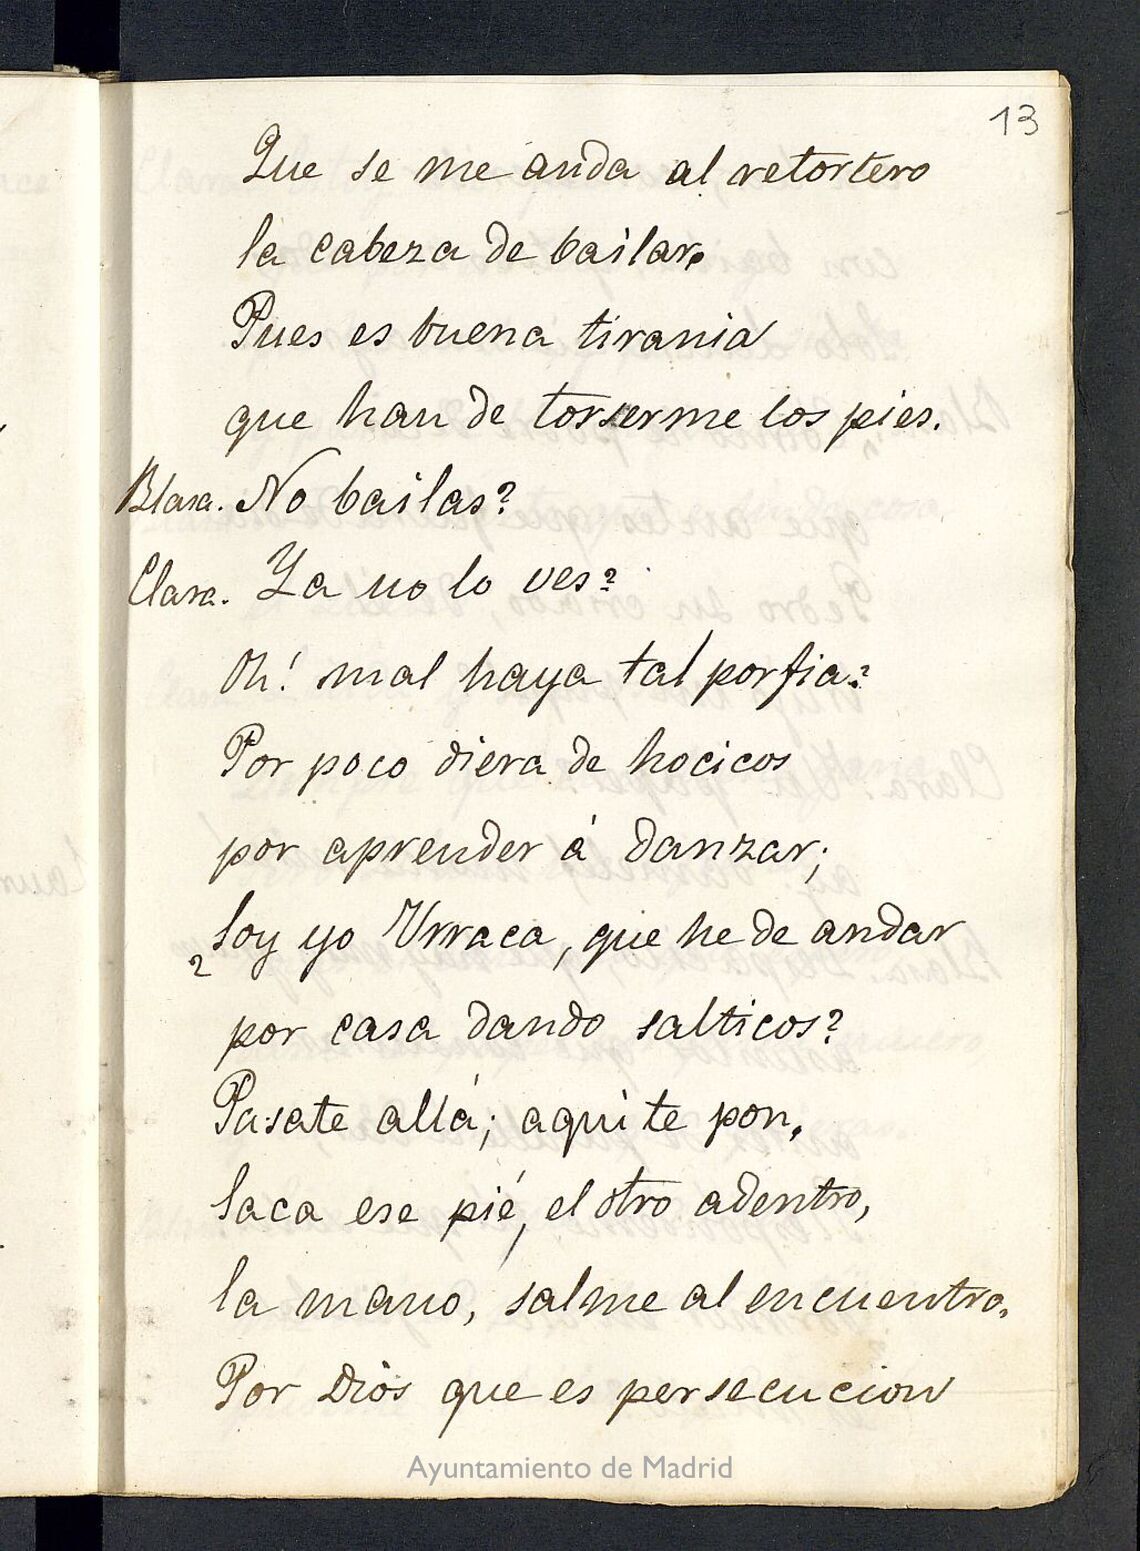 13
Que se me anda al retortero
la cabeza de bailar.
Pues es buena tirania
que han de torserme los pies.
Blasa. No bailas?
Clara. Ya no lo ves?
Oh! mal haya tal porfia?
Por poco diera de hocicos
por aprender á danzar;
¿Soy yo Urraca, que he de andar
por casa dando salticos?
Pasate allá; aqui te pon,
saca ese pié, el otro adentro,
la mano, salme al encuentro.
Por Dios que es persecucion
Ayuntamiento de Madrid